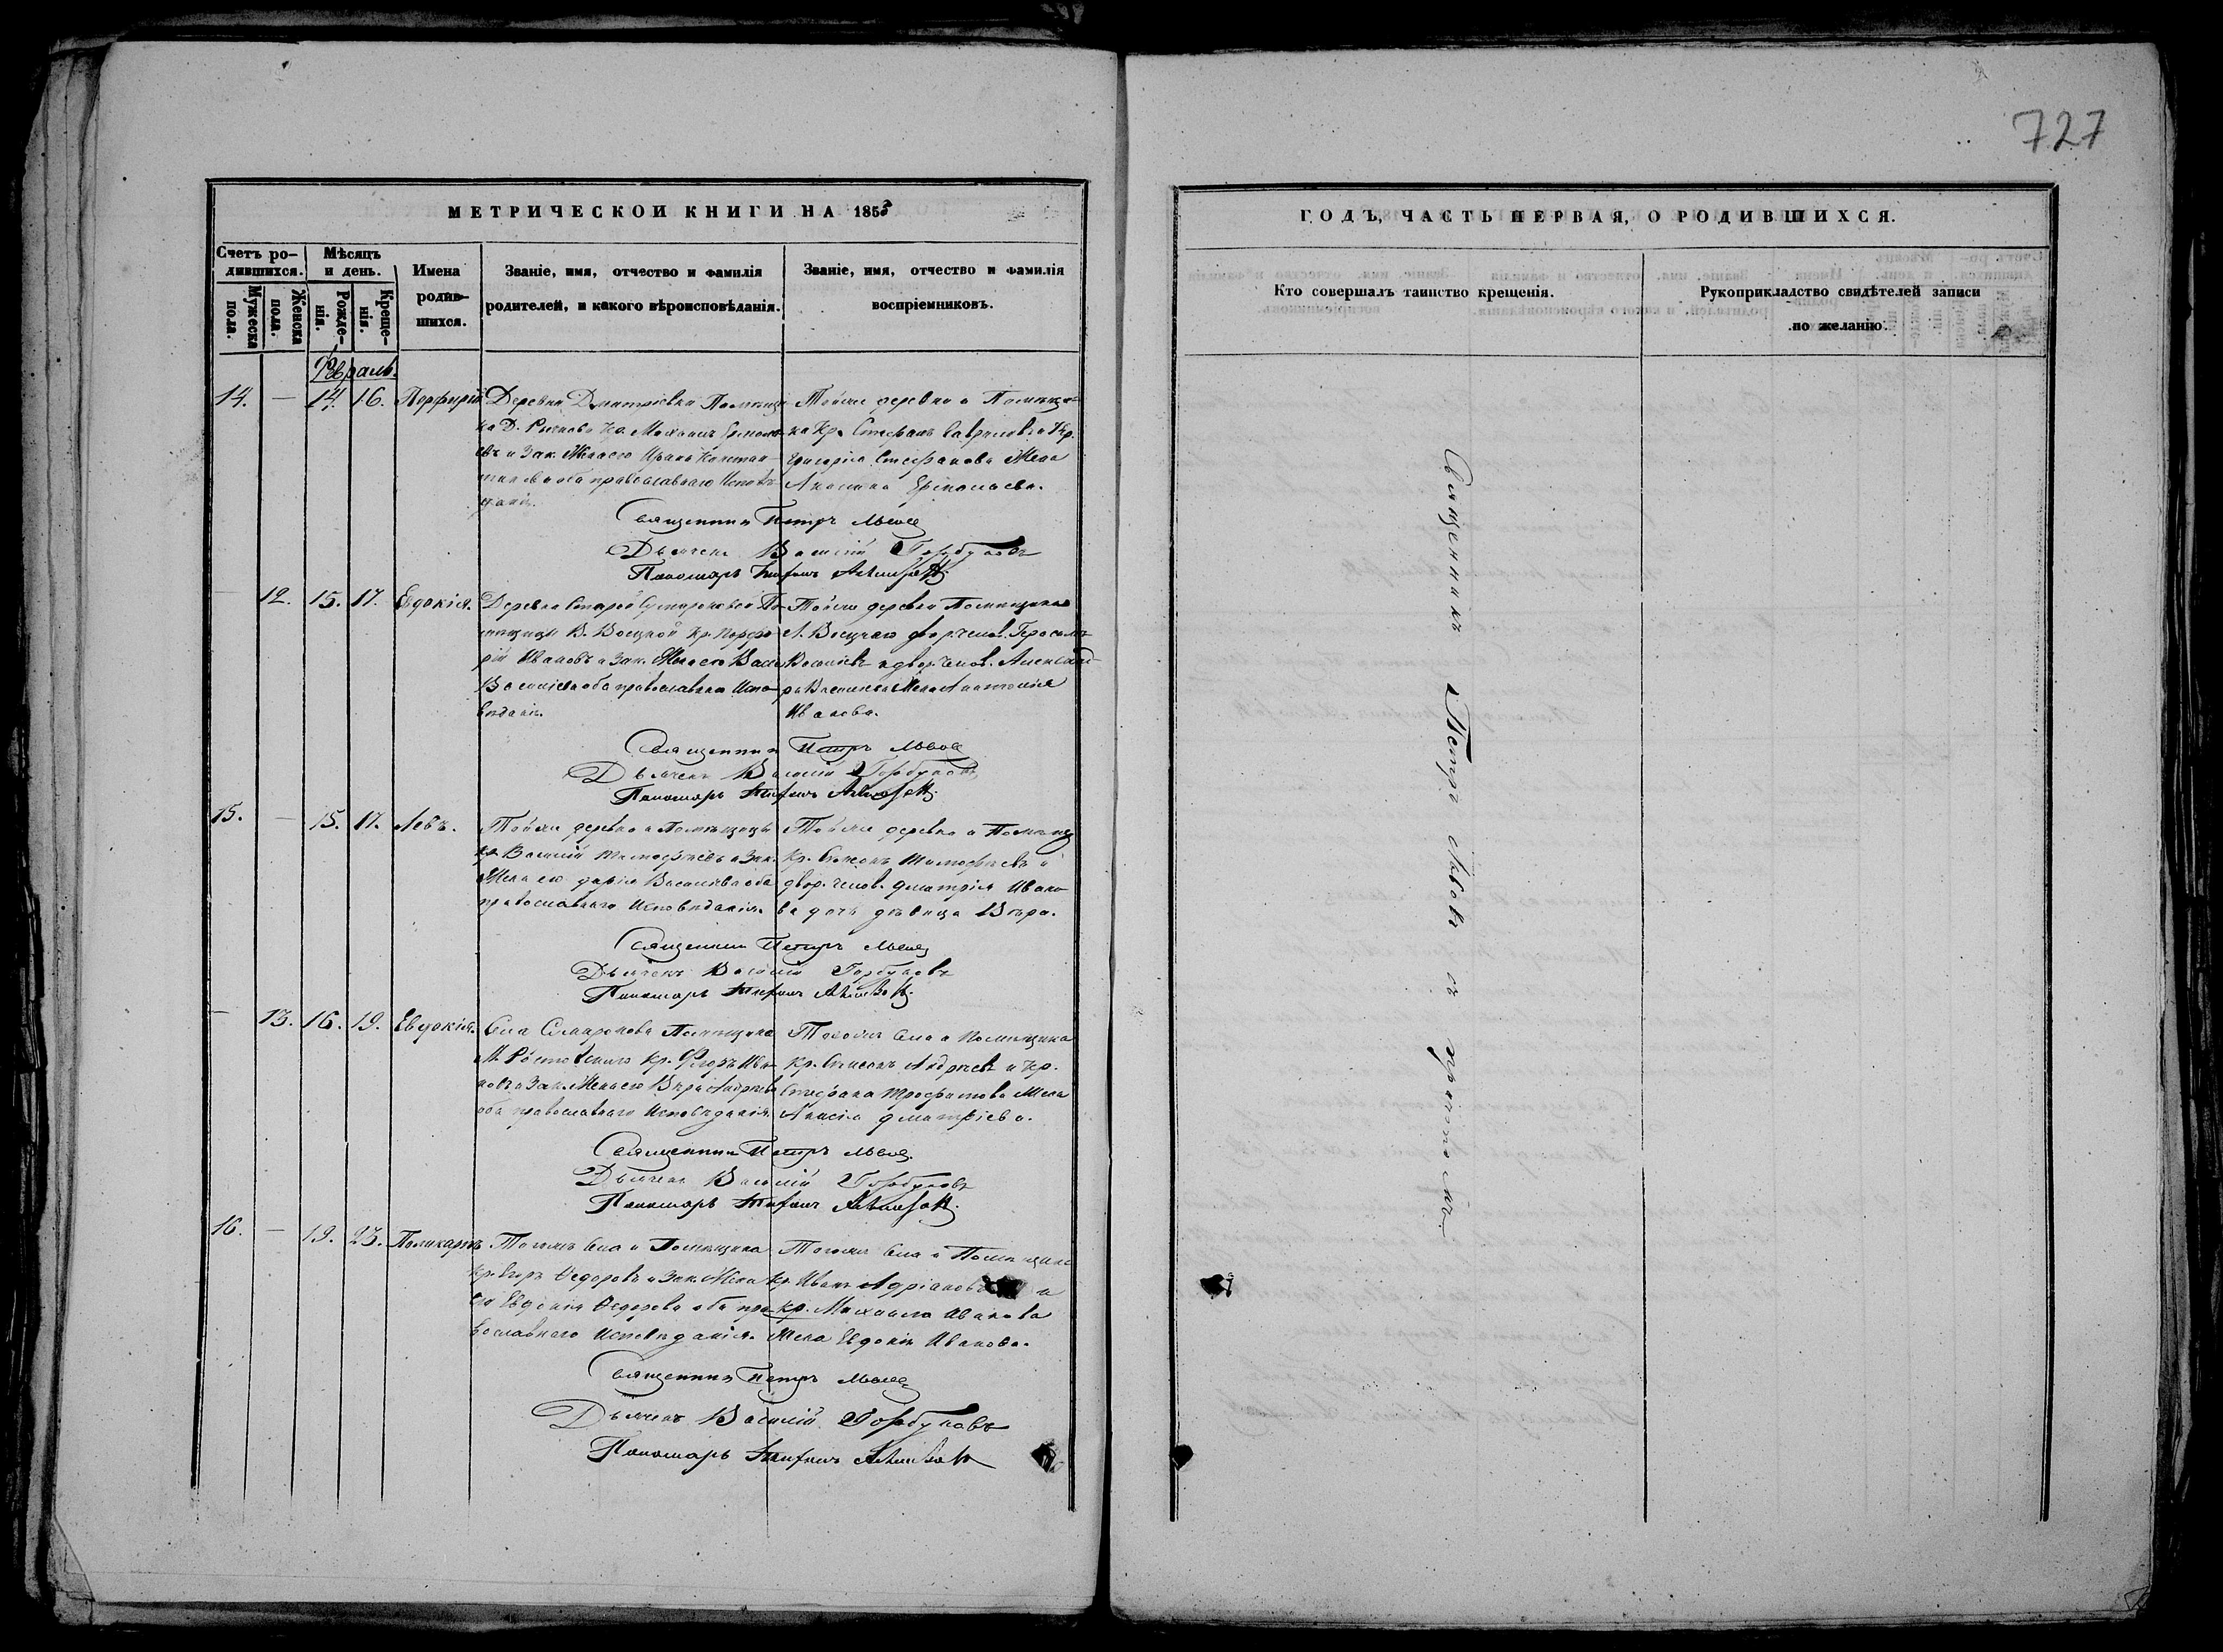 727
МЕТРИЧЕСКОЙ КНИГИ НА 1853
ГОДЪ, ЧАСТЬ ПЕРВАЯ, О РОДИВШИХСЯ.
Счетъ ро-
дившихся.
Мужеска
пола.
Женска
пола.
Мѣсяцъ
и день.
Рожде-
нія.
Креще-
нія.
Имена
родив-
шихся.
Званіе, имя, отчество и фамилія
родителей, и какого вѣроисповѣданія.
Званіе, имя, отчество и фамилія
воспріемниковъ.
Кто совершалъ таинство крещенія.
Рукоприкладство свидѣтелей записи
по желанію.
Февраль.
14. — 14. 16. Порфирій
Деревни Дмитріевки Помѣщи
ка Д. кр.
евъ и Зак. Жена его
оба православнаго Исповѣ
данія.
Тойже деревни и Помѣщи-
ка Кр. Стефанъ Гавриловъ и Кр.
Григорія Стефанова Жена
Акилина Ермолаева.
Священникъ Петръ Львовъ
Дьячекъ Василій Горбуновъ
Пономарь
— 12. 15. 17. Евдокія.
Деревни Старой По-
мѣщицы В. Воецкой Кр. Порфи
рій Ивановъ и Зак. Жена его
Василіева оба православнаго Испо-
вѣданія.
Тойже деревни Помѣщика
Л. Воецкаго двор. челов. Герасимъ
Василіевъ и двор. челов. Александ-
ра Василіева Жена
Иванова.
Священникъ Петръ Львовъ
Дьячекъ Василій Горбуновъ
Пономарь
15. — 15. 17. Левъ.
Тойже деревни и Помѣщицы
кр. Василій Тимофѣевъ и Зак.
Жена его Дарія Василіева оба
православнаго Исповѣданія.
Тойже деревни и Помѣщ
Кр. Симеонъ Тимофѣевъ и
двор. челов. Дмитрія Ивано
ва дочь дѣвица Вѣра.
Священникъ Петръ Львовъ
Дьячекъ Василій Горбуновъ
Пономарь
— 13. 16. 19. Евдокія.
Села Помѣщика
М. Ростовскаго Кр. Ива-
новъ и Зак. Жена его Вѣра Андреева
оба православнаго Исповѣданія.
Тогожъ Села и Помѣщика
Кр. Симеонъ Андреевъ и Кр.
Стефана Трофимова Жена
Анисія Дмитріева.
Священникъ Петръ Львовъ
Дьячекъ Василій Горбуновъ
Пономарь
16. — 19. 23. Поликарпъ
Тогожъ Села и Помѣщика
Кр. Егоръ Ѳедоровъ и Зак. Жена
его Ѳедорова оба пра
вославнаго Исповѣданія.
Тогожъ Села и Помѣщика
Кр. Иванъ Адріановъ и
Кр. Михаила Иванова
Жена Евдокія Иванова.
Священникъ Петръ Львовъ
Дьячекъ Василій Горбуновъ
Пономарь
Священникъ Петръ Львовъ съ причтомъ.